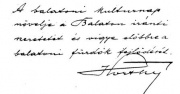 A balatoni kulturnap
növelje a Balaton iránti
szeretetet és vigye előbbre a
balatoni fürdők fejlődését.
Horthy